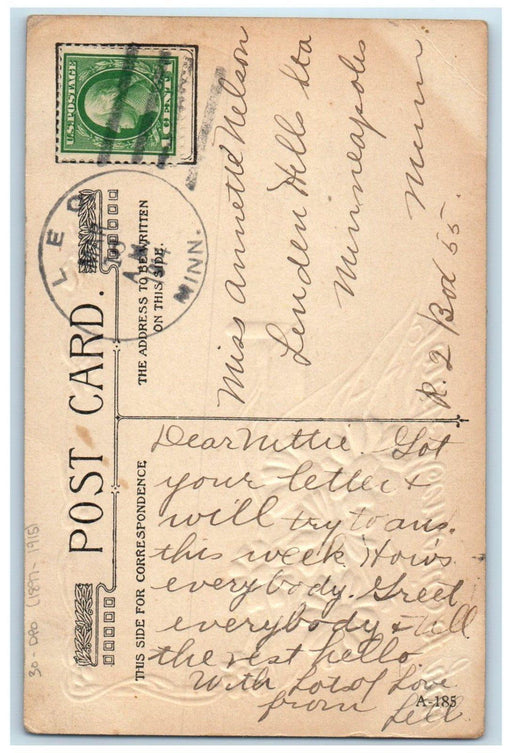 U.S. POSTAGE
1 CENT 1
LEO
A.M.
MINN.
POST CARD.
THE ADDRESS TO BE WRITTEN
ON THIS SIDE.
Miss Annette Nelson
Linden Hills Sta
Minneapolis
Minn.
R. 2 Box 55.
THIS SIDE FOR CORRESPONDENCE
Dear Nettie. Got
your letter &
will try to ans.
this week. How's
everybody. Greet
everybody & tell
the rest hello
With Lots of Love
from Lell
A-185
30- DPO (1897-1915)